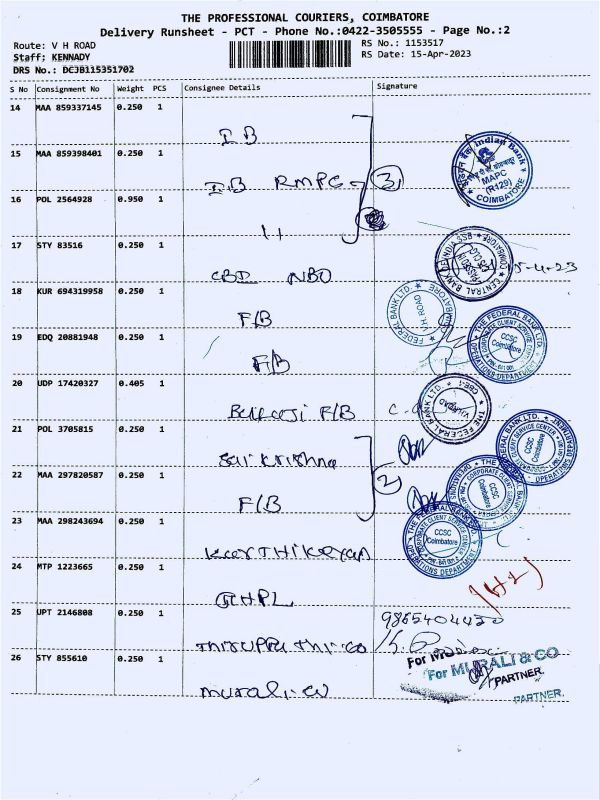 THE PROFESSIONAL COURIERS, COIMBATORE
Delivery Runsheet - PCT - Phone No.:0422-3505555 - Page No.:2
Route: V H ROAD
RS No.: 1153517
Staff: KENNADY
RS Date: 15-Apr-2023
DRS No.: DCJB115351702
S No Consignment No Weight PCS Consignee Details Signature
14 MAA 859337145 0.250 1
IB
15 MAA 859398401 0.250 1
IB RMPC 3
Indian Bank
MAPC
(R129)
COIMBATORE
16 POL 2564928 0.950 1
17 STY 83516 0.250 1
CBD NBO
CENTRAL BANK OF INDIA
15-4-23
18 KUR 694319958 0.250 1
F/B
FEDERAL BANK LTD.
V.H. ROAD
19 EDQ 20881948 0.250 1
F/B
THE FEDERAL BANK LTD.
CORPORATE CLIENT SERVICE CENTER
CCSC
Coimbatore
OPERATIONS DEPARTMENT
20 UDP 17420327 0.405 1
F/B
THE FEDERAL BANK LTD.
21 POL 3705815 0.250 1
Sai Krishna
CCSC
Coimbatore
22 MAA 297820587 0.250 1
F/B 2
CCSC
Coimbatore
23 MAA 298243694 0.250 1
KARTHIKEYAN
CCSC
Coimbatore
OPERATIONS DEPARTMENT
24 MTP 1223665 0.250 1
25 UPT 2146808 0.250 1
9865404420
26 STY 855610 0.250 1
For MURALI & CO
PARTNER.
PARTNER.